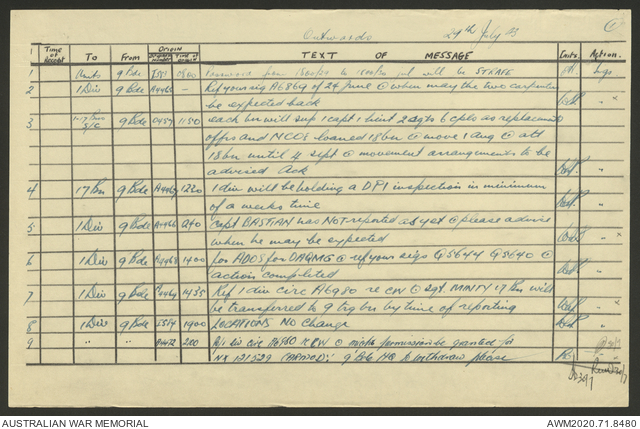 Outwards 29th July 43 1
Time of Receipt To From ORIGIN Originator's Number Time of Origin TEXT OF MESSAGE Inits. Action.
1 Units 9 Bde 0800 Password from 1800/29 to 1800/30 jul will be STRAFE Sigs
2 1 Div 9 Bde A4465 - Ref your sig A6869 of 24 June @ when may the two carpenters
be expected back
3 9 Bde 0457 1150 each bn will sup 1 capt 1 lieut 2 sgts 6 cpls as replacement
offrs and NCOs loaned 18 bn @ move 1 aug @ att
18 bn until 4 sept @ movement arrangements to be
advised Ack
4 17 Bn 9 Bde A4467 1220 1 div will be holding a DPI inspection in minimum
of a weeks time
5 1 Div 9 Bde A4466 1240 Capt BASTIAN has NOT reported as yet @ please advise
when he may be expected
6 1 Div 9 Bde A4468 1400 for ADOS for DAQMG @ ref your sigs Q5644 Q5640 @
action completed
7 1 Div 9 Bde A4469 1435 Ref 1 div circ A6980 re CW @ Sgt MINTY 17 Bn will
be transferred to 9 trg bn by time of reporting
8 1 Div 9 Bde 1900 LOCATIONS No Change
9 " " A4472 Ref 1 div circ A6980 re CW @ might permission be granted for
9 Bde HQ to withdraw please
AUSTRALIAN WAR MEMORIAL AWM2020.71.8480